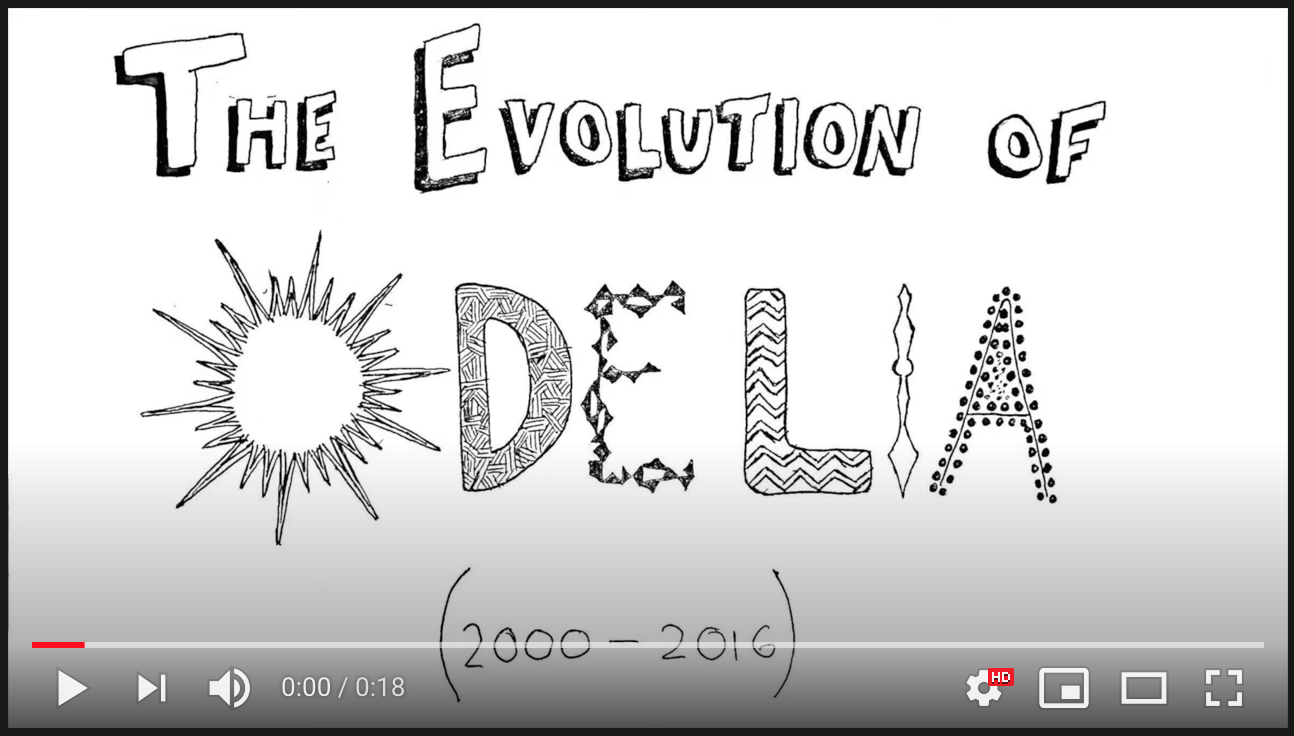 THE EVOLUTION OF
ODELIA
(2000 - 2016)
0:00 / 0:18
HD